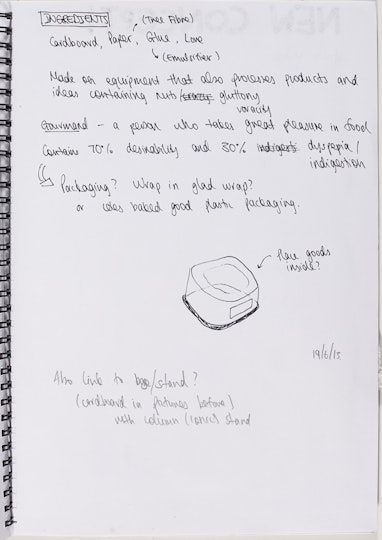 INGREDIENTS (Tree Fibre)
Cardboard, Paper, Glue, Love
(Emulsifier)
Made on equipment that also processes products and
ideas containing nuts/ gluttony
voracity
Gourmand – a person who takes great pleasure in food
Contain 70% desirability and 30% indigesti dyspepsia/
indigestion
Packaging? Wrap in glad wrap?
or coles baked good plastic packaging.
Place goods
inside?
19/6/15
Also link to base/stand?
(cardboard in pictures before)
with column (ionic) stand